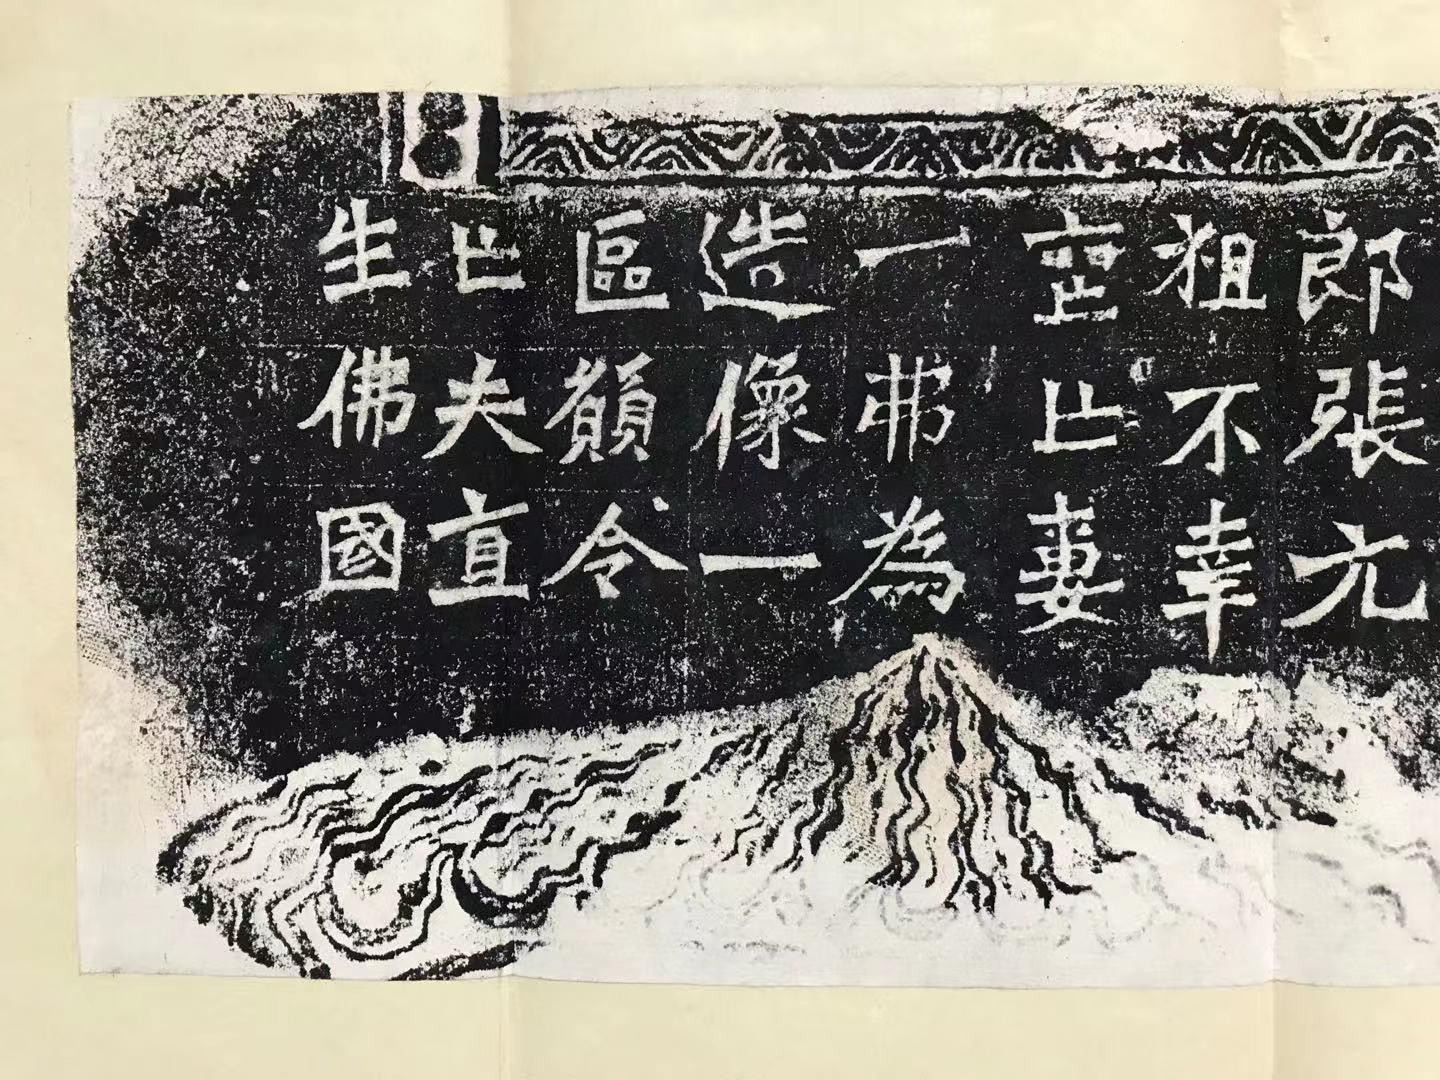 郎張元
祖不幸
喪亡妻
一弗為
造像一
區願令
亡夫直
生佛國